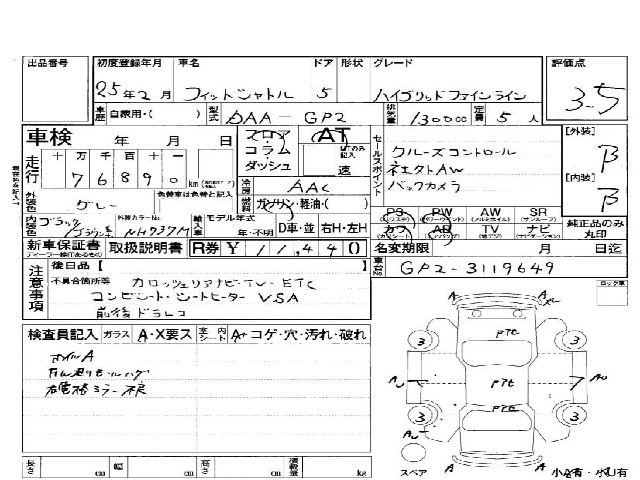 出品番号 初度登録年月 車名 ドア 形状 グレード 評価点
25年2月 フィットシャトル 5 ハイブリッドファインライン 3.5
車歴 自家用・( ) 型式 DAA-GP2 排気量 1300cc 定員 5人
車検 年 月 日 フロア AT セールスポイント クルーズコントロール [外装] B
コラム MTのみ記入 社外AW
走行 十 万 千 百 十 一 ダッシュ 速 バックカメラ [内装] B
7 6 8 9 0 km 冷房 AAC
外装色 グレー 色替車は色替と記入 燃料 ガソリン・軽油・( ) PS PW AW SR
内装色 ブラック 外装カラーNo. NH737M 輸入車 モデル年式 年・不明 D車・並 右H・左H カワ AB TV ナビ 純正品のみ丸印
新車保証書 取扱説明書 R券 ¥11,440 名変期限 月 日迄
注意事項 後日品【 】 車台No. GP2-3119649
不具合箇所等 カロッツェリアナビ・TV・ETC
コンビシート・シートヒーター VSA
前後ドラレコ
ロック車
検査員記入 ガラス A・X要ス 室内シート A+コゲ・穴・汚れ・破れ
ホイルA
右電格ミラー不良
PTE
3 3
AU PTE 7 AU
3 PTE 3
AU
スペア 小A有・小U有
長さ cm 幅 cm 高さ cm 積載量 kg